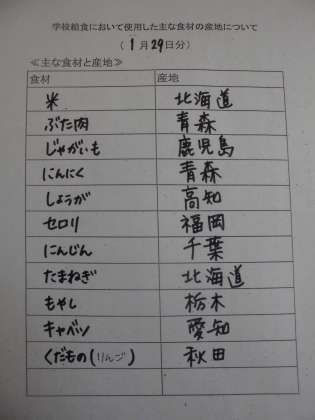 学校給食において使用した主な食材の産地について
（1月29日分）
≪主な食材と産地≫
食材 産地
米 北海道
ぶた肉 青森
じゃがいも 鹿児島
にんにく 青森
しょうが 高知
セロリ 福岡
にんじん 千葉
たまねぎ 北海道
もやし 栃木
キャベツ 愛知
くだもの(りんご) 秋田